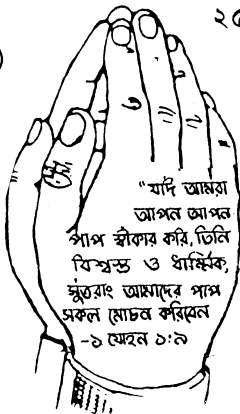 ২৫
"যদি আমরা
আপন আপন
পাপ স্বীকার করি, তিনি
বিশ্বস্ত ও ধার্ম্মিক,
সুতরাং আমাদের পাপ
সকল মোচন করিবেন
-১ যোহন ১:৯